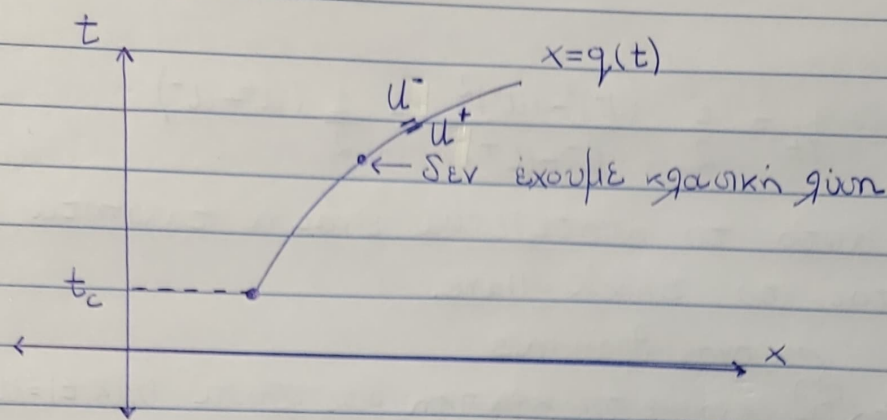 t
x=q(t)
u⁻
u⁺
← δεν έχουμε κλασική λύση
t_c
x